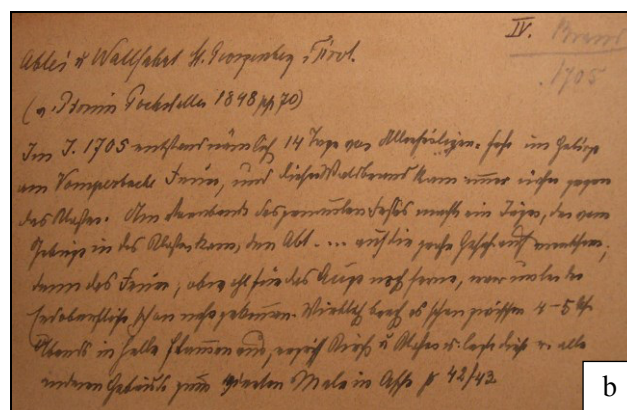 IV. Brand
1705
Abtei u Wallfahrt St. Georgenberg, Tirol.
(v. Pirmin Pockstaller 1848 pp 70)
Im J. 1705 entstand nämlich 14 Tage vor Allerheiligen-fest im Gebirge
am Vomperbache Feuer, und dieser Waldbrand kam immer näher gegen
das Kloster. Am Vorabende des genannten Festes machte ein Jäger, der vom
Gebirge in das Kloster kam, den Abt .... auf die große Gefahr aufmerksam,
denn das Feuer, obwohl für das Auge noch ferne, war unter der
Erdoberfläche schon nahe gekommen. Wirklich brach es schon zwischen 4-5 Uhr
Abends in helle Flammen aus, ergriff Kirche u Kloster u. legte diese u. alle
anderen Gebäude zum vierten Male in Asche p 42/43
b